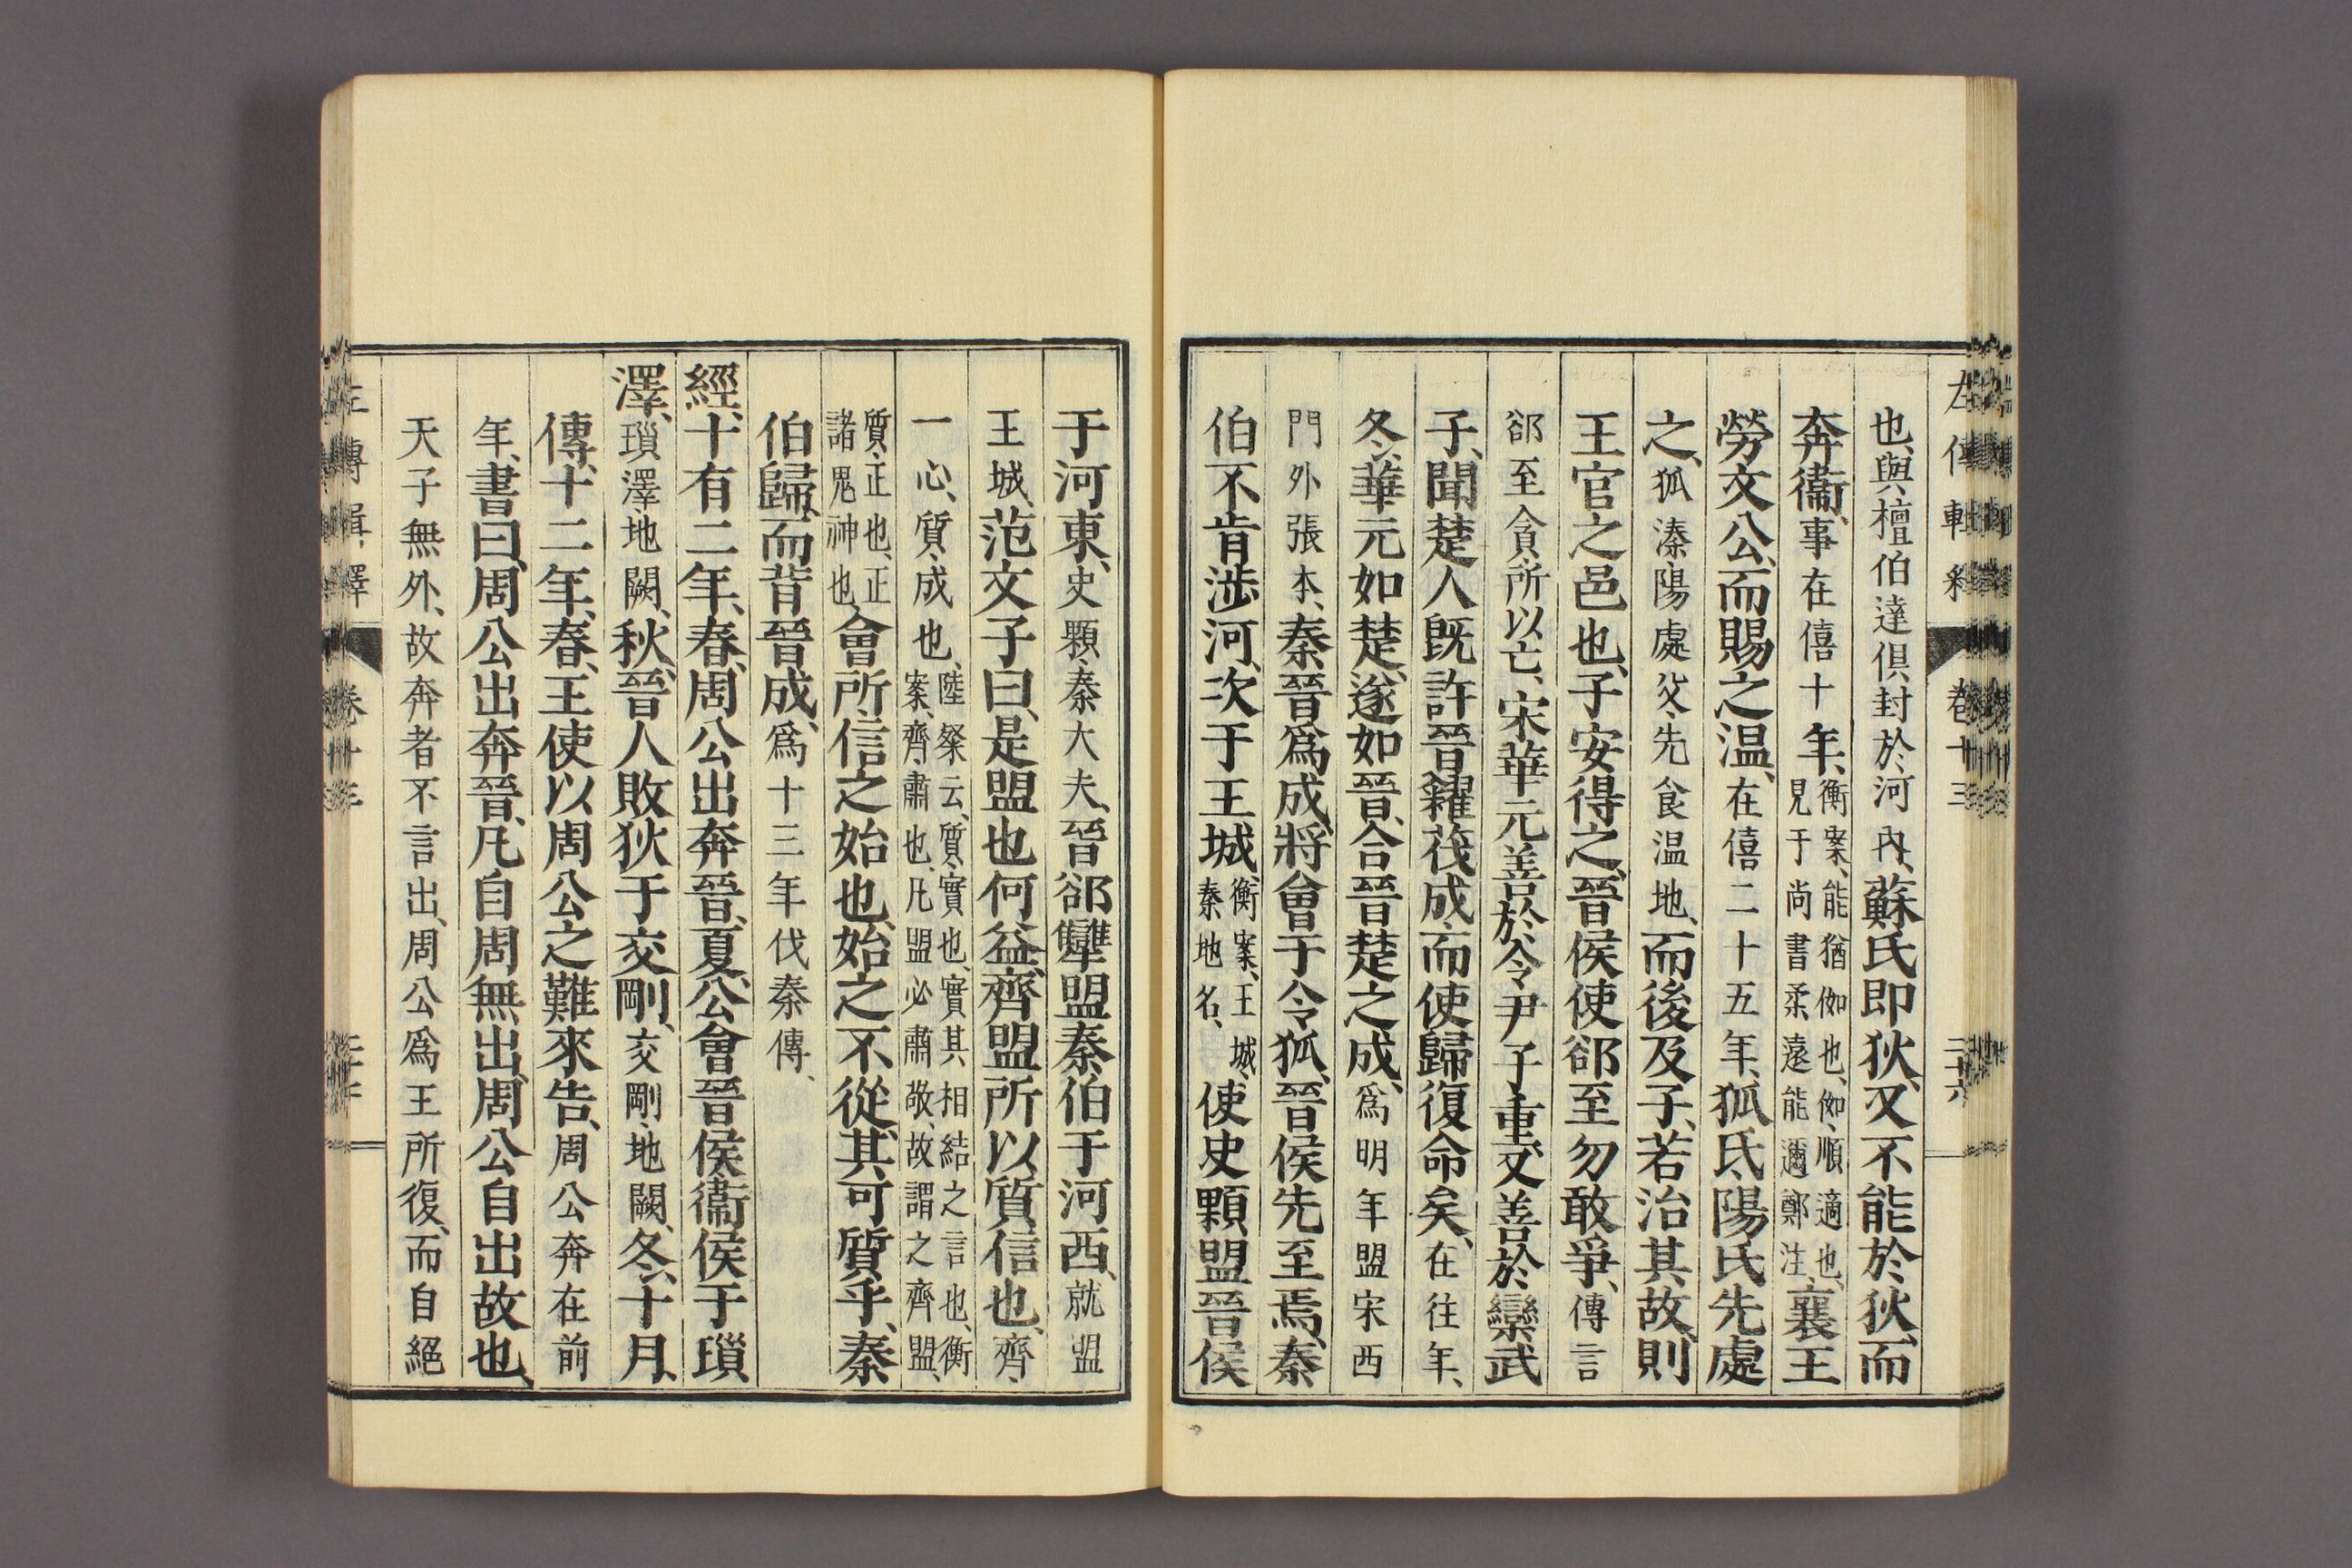 也、與檀伯達俱封於河內、蘇氏即狄、又不能於狄、而
奔衞、事在僖十年、衡案、能猶伽也、伽、順適也、見于尚書柔遠能邇鄭注、襄王
勞文公、而賜之温、在僖二十五年、狐氏、陽氏先處
之、狐溱陽處父、先食温地、而後及子、若治其故、則
王官之邑也、子安得之、晉侯使郤至勿敢爭、傳言
郤至貪、所以亡、宋華元善於令尹子重、又善於欒武
子、聞楚人旣許晉糴茷成、而使歸復命矣、在往年、
冬、華元如楚、遂如晉、合晉楚之成、爲明年盟宋西
門外張本、秦晉爲成、將會于令狐、晉侯先至焉、秦
伯不肯涉河、次于王城、衡案、王城、秦地名、使史顆盟晉侯
于河東、史顆、秦大夫、晉郤犫盟秦伯于河西、就盟
王城、范文子曰、是盟也何益、齊盟所以質信也、齊、
一心、質、成也、陸粲云、質、實也、實其相結之言也、衡案、齊、肅也、凡盟必肅敬、故謂之齊盟、
質、正也、正諸鬼神也、會所、信之始也、始之不從、其可質乎、秦
伯歸、而背晉成、爲十三年伐秦傳、
經、十有二年、春、周公出奔晉、夏、公會晉侯衞侯于瑣
澤、瑣澤、地闕、秋、晉人敗狄于交剛、交剛、地闕、冬、十月、
傳、十二年、春、王使以周公之難來告、周公奔在前
年、書曰、周公出奔晉、凡自周無出、周公自出故也、
天子無外、故奔者不言出、周公爲王所復、而自絕
左傳輯釋
卷十三
二十六